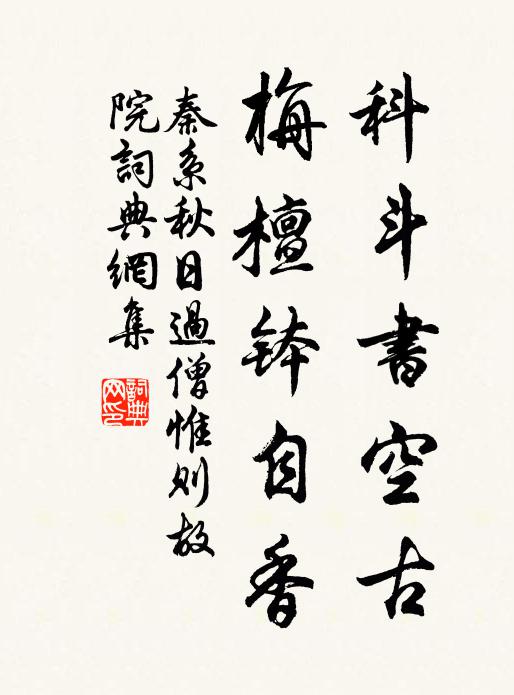 科斗書空古
梅檀缽自香
秦系秋日過僧惟則故
院詞典網集
詞典网印